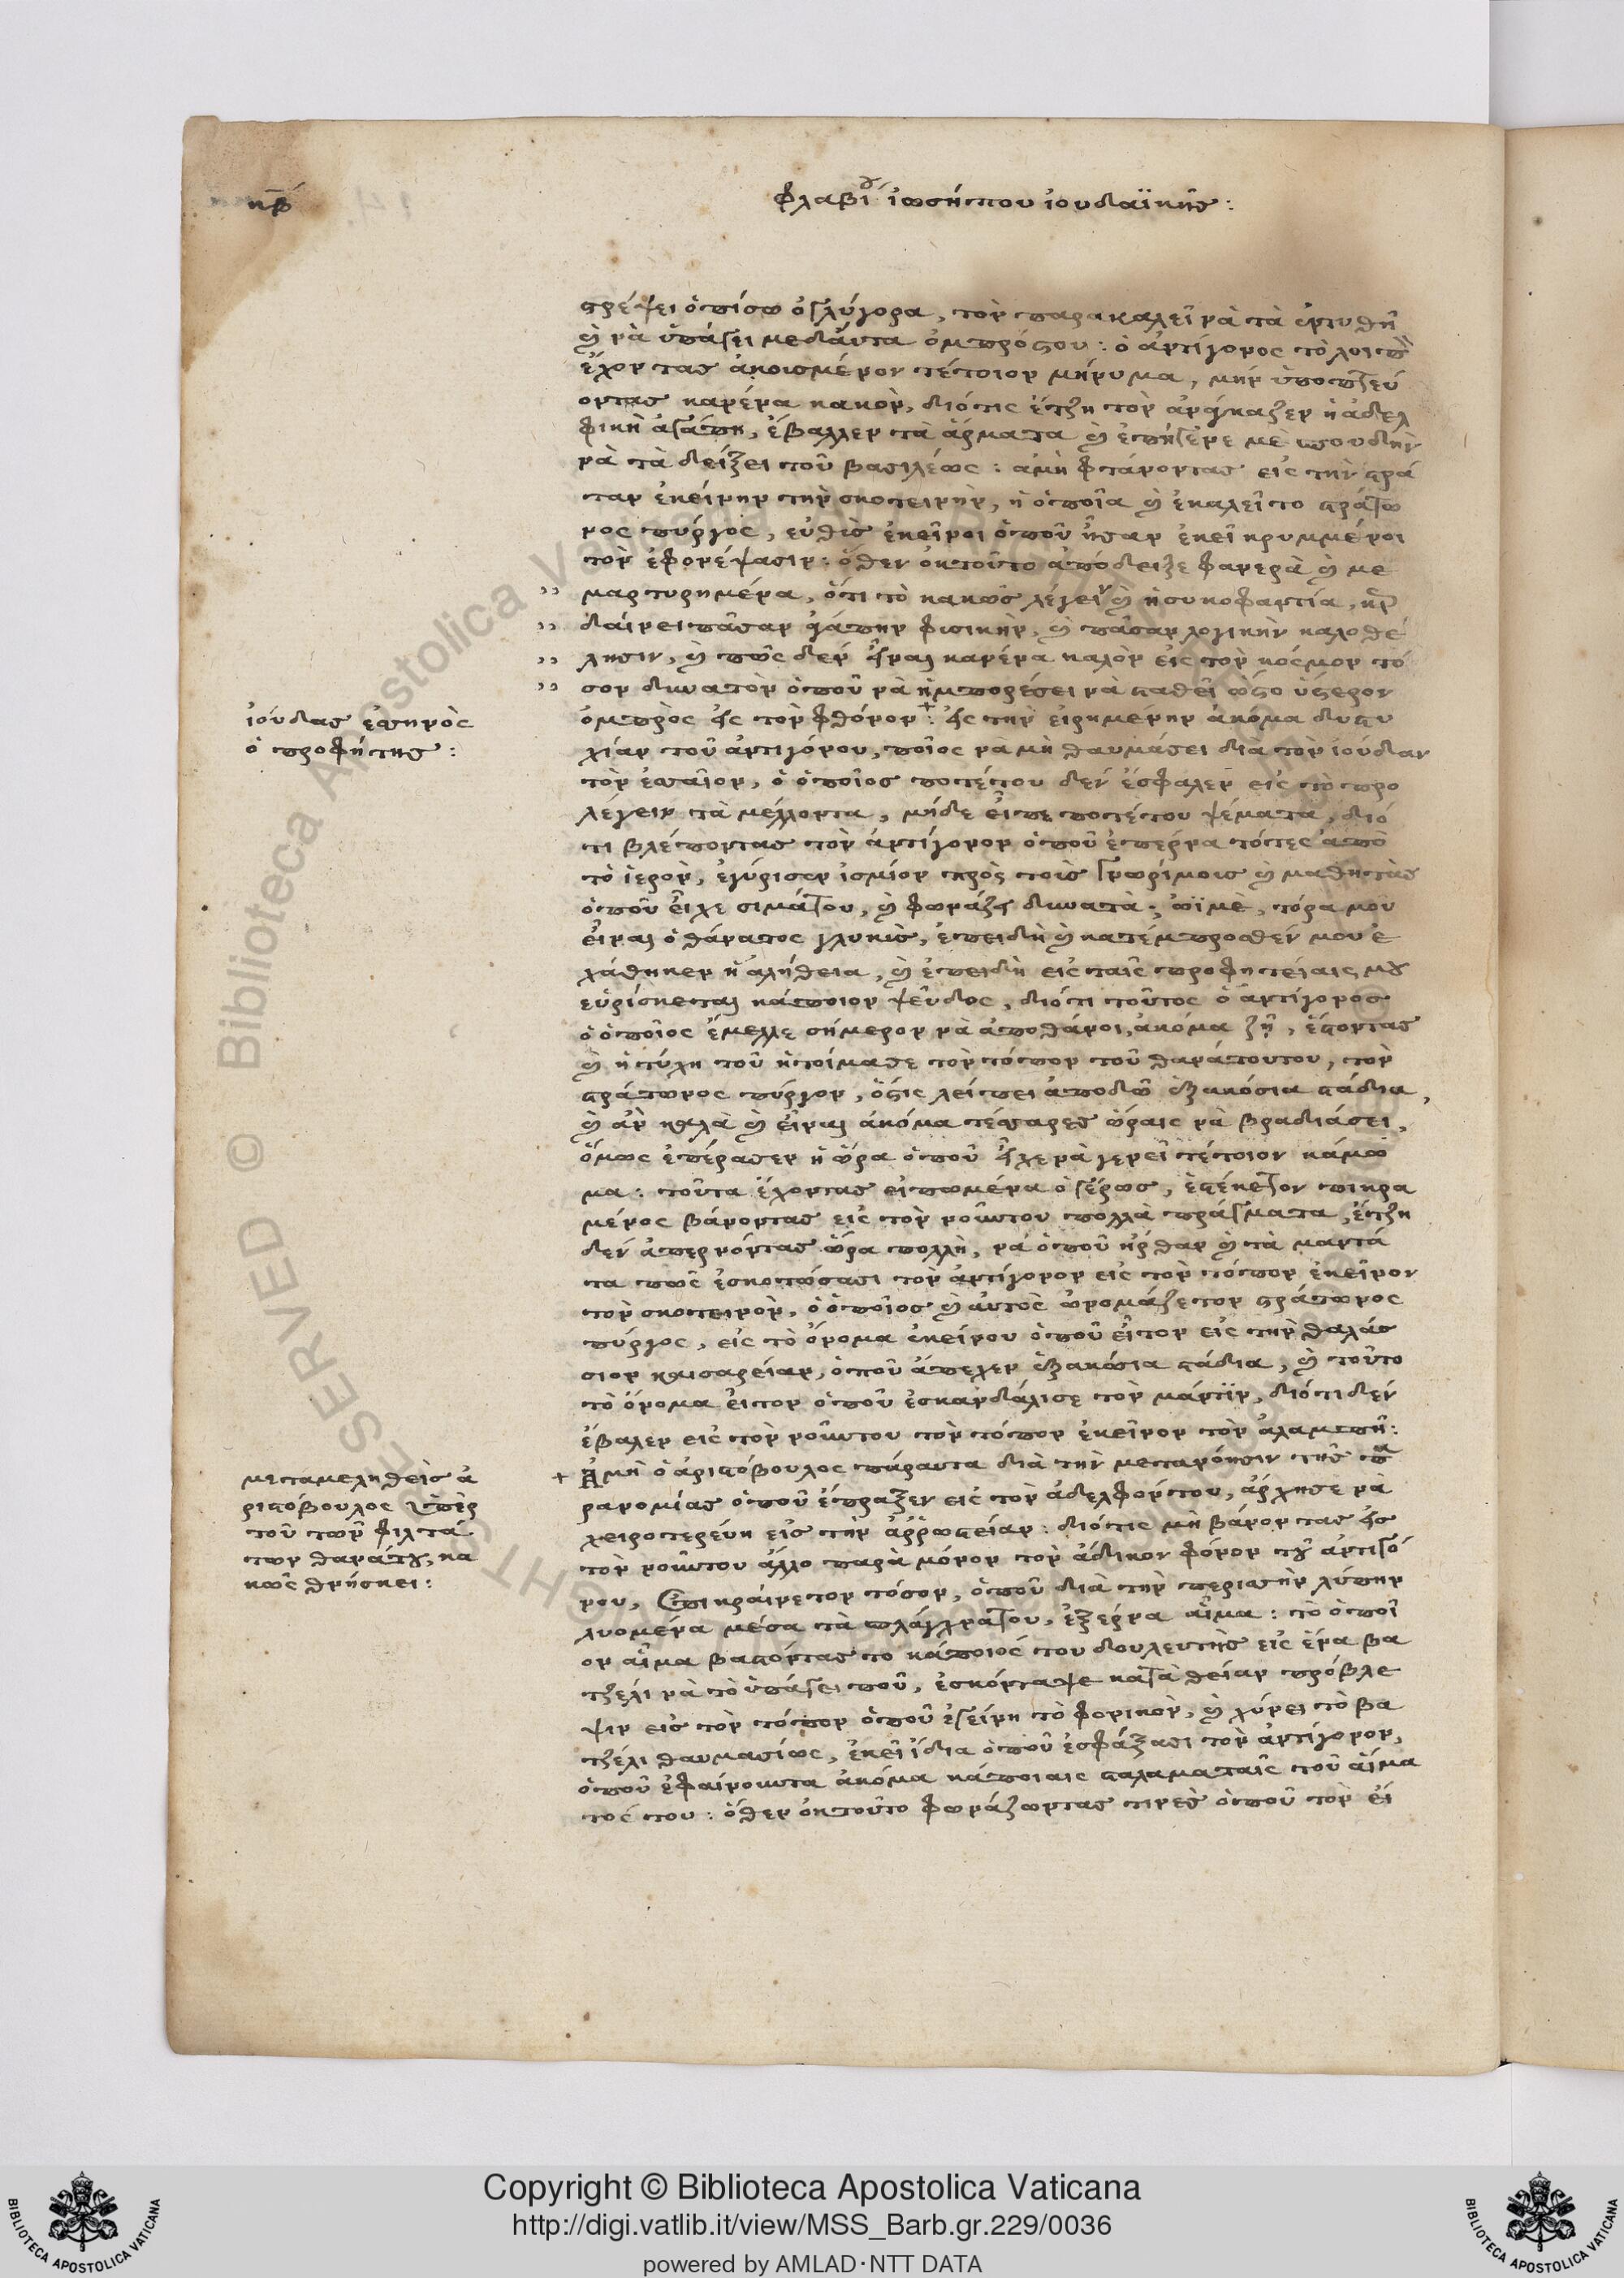 κβ
φλαβίου ἰωσήπου ἰουδαϊκῆς:
στρέψει ὀπίσω ὀγλύγορα, τὸν παρακαλεῖ νὰ τὰ ἐντυθῇ
καὶ νὰ ὑπάγει μεδάυτα ὀμπρόστου: ὁ ἀντίγονος τὸ λοιπὸ
ἔχοντας ἀκουσμένον τέτοιον μήνυμα, μὴν ὑποπτεύ
οντας κανένα κακὸν, διότις ἔτζη τὸν ἀνάγκαζεν ἡ ἀδελ
φικὴ ἀγάπη, ἔβαλλεν τὰ ἄρματα καὶ ἐπήγενε μὲ σπουδὴν
νὰ τὰ δείξει τοῦ βασιλέως: ἀμὴ φτάνοντας εἰς τὴν στρά
ταν ἐκείνην τὴν σκοτεινὴν, ἡ ὁποῖα καὶ ἐκαλεῖτο στράτω
νος πύργος, εὐθὺς ἐκεῖνοι ὁποῦ ἦσαν ἐκεῖ κρυμμένοι
τὸν ἐφονέψασιν: ὅθεν ἐκτοῦτο ἀπόδειξε φανερὰ καὶ με
μαρτυρημένα, ὅτι τὸ κακῶς λέγειν καὶ ἡ συκοφαντία,
λαίνει πᾶσαν ἀγάπην φυσικὴν, καὶ πᾶσαν λογικὴν καλοθέ
λησιν, καὶ πῶς δὲν εἶναι κανένα καλὸν εἰς τὸν κόσμον τό
σον δυνατὸν ὁποῦ νὰ ἠμπορέσει νὰ σταθεῖ ὥστο ὕστερον
ὀμπρὸς εἰς τὸν φθόνον: εἰς τὴν εἰρημένην ἀκόμα δυστυ
χίαν τοῦ ἀντιγόνου, ποῖος νὰ μὴ θαυμάσει διὰ τὸν ἰούδαν
τὸν ἐσσαῖον, ὁ ὁποῖος ποτέ του δὲν ἔσφαλεν εἰς τὸ προ
λέγειν τὰ μέλλοντα, μήδε εἶπε ποτέ του ψέματα, διό
τι βλέποντας τὸν ἀντίγονον ὁποῦ ἐπέρνα τότες ἀπὸ
τὸ ἱερὸν, ἐγύρισεν ἰσμίον πρὸς τοὺς γνωρίμους καὶ μαθητὰς
ὁποῦ εἶχε σιμάτου, καὶ φωνάζει δυνατά: ὠϊμὲ, τόρα μου
εἶναι ὁ θάνατος γλυκὺς, ἐπειδὴ καὶ κατέμπροσθέν μου ἐ
χάθηκεν ἡ ἀλήθεια, καὶ ἐπειδὴ εἰς ταῖς προφητείαις μου
εὑρίσκεται κάποιον ψεῦδος, διότι τοῦτος ὁ ἀντίγονος
ὁ ὁποῖος ἔμελλε σήμερον νὰ ἀποθάνοι, ἀκόμα ζῇ, ἔστοντας
καὶ ἡ τύχη τοῦ ἠτοίμασε τὸν τόπον τοῦ θανάτουτου, τὸν
στράτωνος πύργον, ὅστις λείπει ἀποδῶ ἑξακόσια στάδια,
καὶ ἂν καλὰ καὶ εἶναι ἀκόμα τέσσαρες ὥραις νὰ βραδιάσει,
ὅμως ἐπέρασεν ἡ ὥρα ὁποῦ εἶχε νὰ γενεῖ τέτοιον κάμω
μα: τοῦτα ἔχοντας εἰπωμένα ὁ γέρως, ἐστέκετον πικρα
μένος βάνοντας εἰς τὸν νοῦντου πολλὰ πράγματα, ἔτζη
δὲν ἀπερνόντας ὥρα πολλὴ, νά ὁποῦ ἦρθαν καὶ τὰ μαντά
τα πῶς ἐσκοτώσασι τὸν ἀντίγονον εἰς τὸν τόπον ἐκεῖνον
τὸν σκοτεινὸν, ὁ ὁποῖος καὶ αὐτὸς ὠνομάζετον στράτωνος
πύργος, εἰς τὸ ὄνομα ἐκείνου ὁποῦ εἶτον εἰς τὴν θαλάσ
σιον καισαρείαν, ὁποῦ ἄπεχεν ἑξακόσια στάδια, καὶ τοῦτο
τὸ ὄνομα εἶτον ὁποῦ ἐσκανδάλισε τὸν μάντϊν, διότι δὲν
ἔβαλεν εἰς τὸν νοῦντου τὸν τόπον ἐκεῖνον τὸν ἀλαμπῆ:
Ἀμὴ ὁ ἀριστόβουλος πάραυτα διὰ τὴν μετανόησιν τῆς πα
ρανομίας ὁποῦ ἔπραξεν εἰς τὸν ἀδελφόντου, ἄρχησε νὰ
χειροτερεύη εἰς τὴν ἀῤῥωστείαν: διότις μὴ βάνοντας εἰς
τὸν νοῦντου ἄλλο παρὰ μόνον τὸν ἄδικον φόνον τοῦ ἀντιγό
νου, ἐπικραίνετον τόσον, ὁποῦ διὰ τὴν περισσὴν λύπην
λυομένα μέσα τὰ πλάγχνατου, ἐξέρνα αἷμα: τὸ ὁποῖ
ον αἷμα βαστόντας το κάποιός του δουλευτὴς εἰς ἕνα βα
τζέλι νὰ τὸ ὑπάγει ποῦ, ἐσκόνταψε κατὰ θείαν πρόβλε
ψιν εἰς τὸν τόπον ὁποῦ ἐγείνη τὸ φονικὸν, καὶ χύνει τὸ βα
τζέλι θαυμασίως, ἐκεῖ ἴδια ὁποῦ ἐσφάξασι τὸν ἀντίγονον,
ὁποῦ ἐφαίνουντα ἀκόμα κάποιαις σταλαματαῖς τοῦ αἵμα
τός του: ὅθεν ἐκτοῦτο φωνάζωντας τινὲς ὁποῦ τὸν εἶ
ἰούδας ἐσσηνὸς
ὁ προφήτης:
μεταμεληθεὶς ἀ
ριστόβουλος ὑπὲρ
τοῦ τῶν φιλτά
των θανάτου, κα
κῶς θρήσκει:
Copyright © Biblioteca Apostolica Vaticana
http://digi.vatlib.it/view/MSS_Barb.gr.229/0036
powered by AMLAD·NTT DATA
BIBLIOTECA APOSTOLICA VATICANA
BIBLIOTECA APOSTOLICA VATICANA